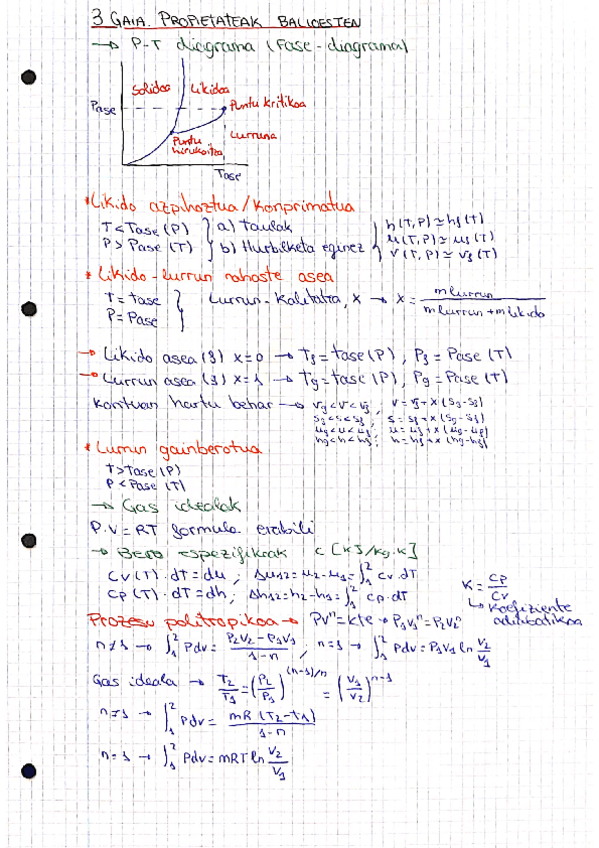 3 GAIA. PROPIETATEAK BALIOESTEN
→ P-T diagrama (Fase-diagrama)
Solidoa Likidoa
Pase Puntu kritikoa
Lurruna
Puntu
hirukoitza
Tase
* Likido azpihoztua/Konprimatua
T<Tase(P) } a) Taulak { h(T,P)≃hf(T)
P>Pase(T) } b) Hurbilketa eginez { u(T,P)≃uf(T)
v(T,P)≃vf(T)
* Likido-lurrun nahaste asea
T=tase } Lurrun-Kalitatea, x → x = m lurrun / (m lurrun + m likido)
P=Pase
→ Likido asea (f) x=0 → Tf=tase(P), Pf=Pase(T)
→ Lurrun asea (g) x=1 → Tg=tase(P), Pg=Pase(T)
Kontuan hartu behar →
s=sf+x(sg-sf)
h=hf+x(hg-hf)
* Lurrun gainberotua
T>Tase(P)
P<Pase(T)
→ Gas idealak
P.V=RT formula erabili
→ Bero espezifikoak c [KJ/Kg.K]
Cv(T)·dT=du ; Δu12=u2-u1=∫₁² Cv dT
Cp(T)·dT=dh ; Δh12=h2-h1=∫₁² Cp·dT
K = Cp/Cv
↳ Koefiziente
adiabatikoa
Prozesu politropikoa → PVⁿ=Kte → P1V1ⁿ=P2V2ⁿ
n≠1 → ∫₁² Pdv = (P2V2-P1V1)/(1-n), n=1 → ∫₁² Pdv=P1V1 ln V2/V1
Gas ideala → T2/T1=(P2/P1)^(n-1)/n = (V1/V2)^n-1
n≠1 → ∫₁² Pdv = mR(T2-T1)/(1-n)
n=1 → ∫₁² Pdv=mRT ln V2/V1